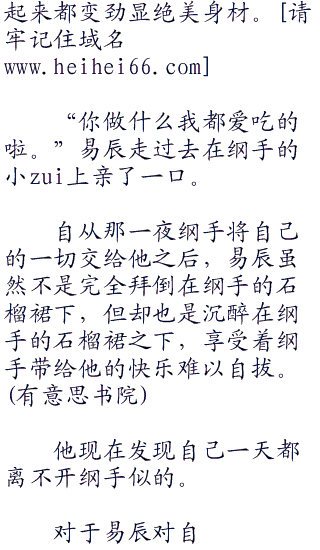 起来都变劲显绝美身材。[请
牢记住域名
www.heihei66.com]
“你做什么我都爱吃的
啦。”易辰走过去在纲手的
小zui上亲了一口。
自从那一夜纲手将自己
的一切交给他之后，易辰虽
然不是完全拜倒在纲手的石
榴裙下，但却也是沉醉在纲
手的石榴裙之下，享受着纲
手带给他的快乐难以自拔。
(有意思书院)
他现在发现自己一天都
离不开纲手似的。
对于易辰对自